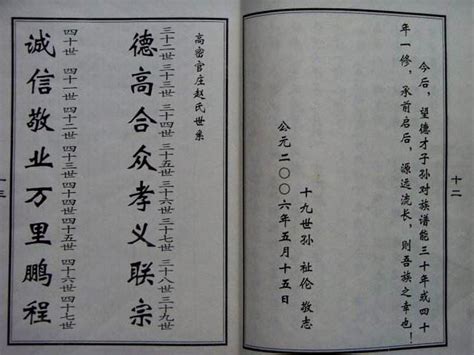 十二
今后，望德才子孙对族谱能三十年或四十
年一修，承前启后，源远流长，则吾族之幸也！
十九世孙 祉伦 敬志
公元二〇〇六年五月十五日
高密官庄赵氏世系
三十二世 三十三世 三十四世 三十五世 三十六世 三十七世 三十八世 三十九世
德高合众孝义联宗
四十世 四十一世 四十二世 四十三世 四十四世 四十五世 四十六世 四十七世
诚信敬业万里鹏程
十三